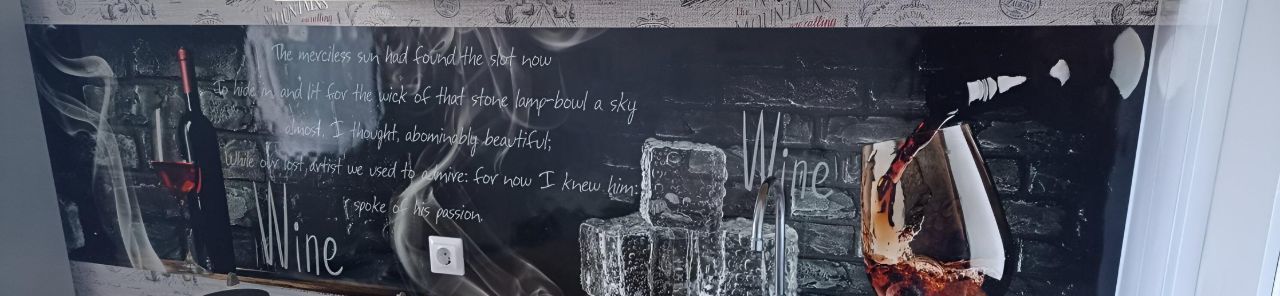 The MOUNTAINS are calling
The merciless sun had found the slot now
To hide in and lit for the wick of that stone lamp-bowl a sky
almost, I thought, abominably beautiful;
While our lost artist we used to admire: for now I knew him:
spoke of his passion.
Wine
Wine